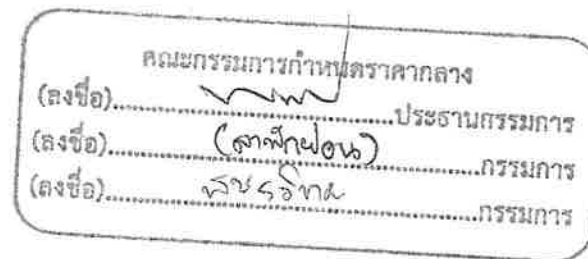 คณะกรรมการกำหนดราคากลาง
(ลงชื่อ)....................ประธานกรรมการ
(ลงชื่อ)....................กรรมการ
(ลงชื่อ)....................กรรมการ